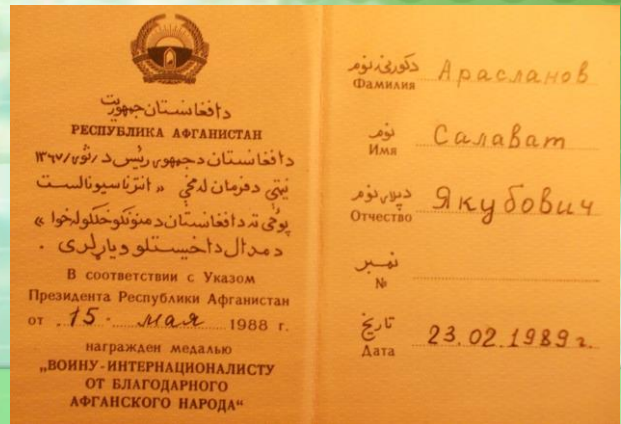 دافغانستان جمهوریت
РЕСПУБЛИКА АФГАНИСТАН
دافغانستان دجمهوری رئیس د /ثور/ ۱۳۶۷
نیټې دفرمان له مخې « انترناسیونالست
پوځي ته دافغانستان دمنونکو خلکو له خوا »
دمدال داخیستلو ویاړ لری .
В соответствии с Указом
Президента Республики Афганистан
от 15 мая 1988 г.
награжден медалью
„ВОИНУ-ИНТЕРНАЦИОНАЛИСТУ
ОТ БЛАГОДАРНОГО
АФГАНСКОГО НАРОДА“
دکورنۍ نوم
Фамилия Арасланов
نوم
Имя Салават
دپلار نوم
Отчество Якубович
نمبر
№
تاریخ
Дата 23.02.1989 г.